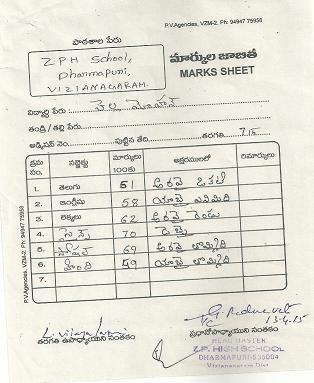 P.V.Agencies, VZM-2. Ph: 94947 75958
పాఠశాల పేరు
Z.P.H School,
Dharmapuri,
VIZIANAGARAM.
మార్కుల జాబితా
MARKS SHEET
విద్యార్థి పేరు :
తండ్రి / తల్లి పేరు :
అడ్మిషన్ నెం. పుట్టిన తేది తరగతి 7
క్రమ నం. సబ్జెక్టు మార్కులు 100కు అక్షరములలో రిమార్కులు
1. తెలుగు 61 అరవై ఒకటి
2. ఇంగ్లీషు 58 యాభై ఎనిమిది
3. లెక్కలు 62 అరవై రెండు
4. సైన్స్ 70 డెబ్బై
5. సోషల్ 69 అరవై తొమ్మిది
6. హింది 59 యాభై తొమ్మిది
7.
P.V.Agencies, VZM-2. Ph: 94947 75958
13-4-15
తరగతి ఉపాధ్యాయుని సంతకం
ప్రధానోపాధ్యాయుని సంతకం
HEAD MASTER
Z.P. HIGH SCHOOL
DHARMAPURI-535004
Vizianagaram Dist